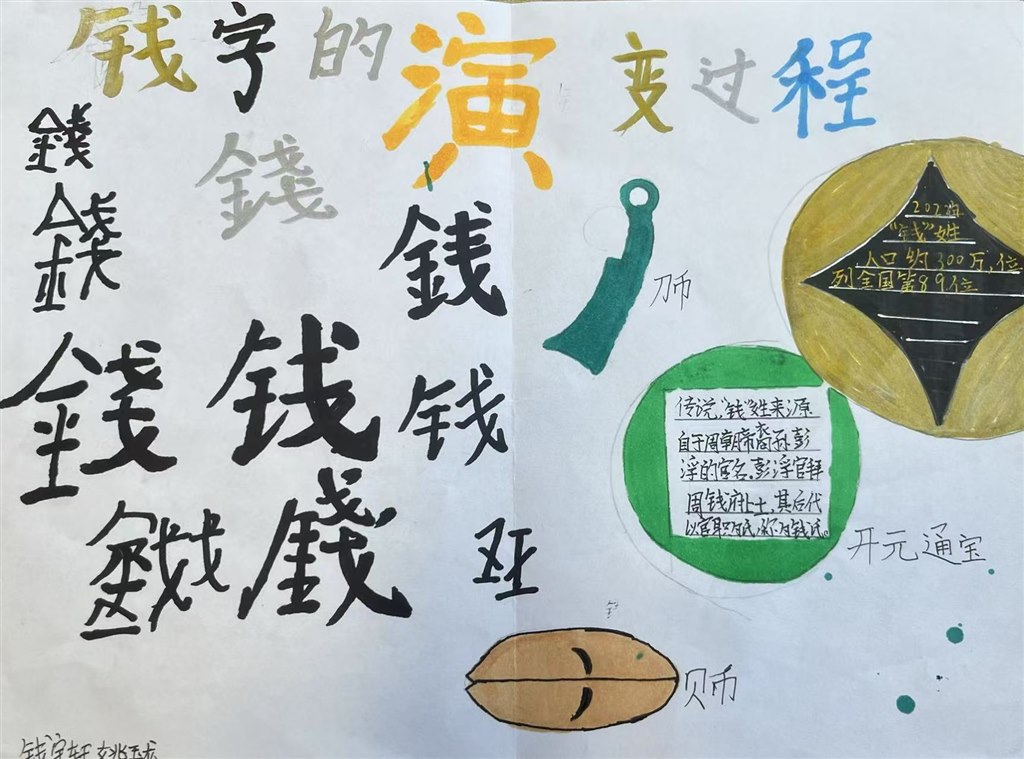 钱字的演变过程
錢
錢
錢
銭
錢
钱
钱
錢
刀币
"钱"姓
人口约300万,位
列全国第89位
传说,"钱"姓来源
自于周朝帝裔孙彭
浮的官名.彭浮官拜
周钱府上士,其后代
以官职为氏,称为钱氏。
开元通宝
贝币